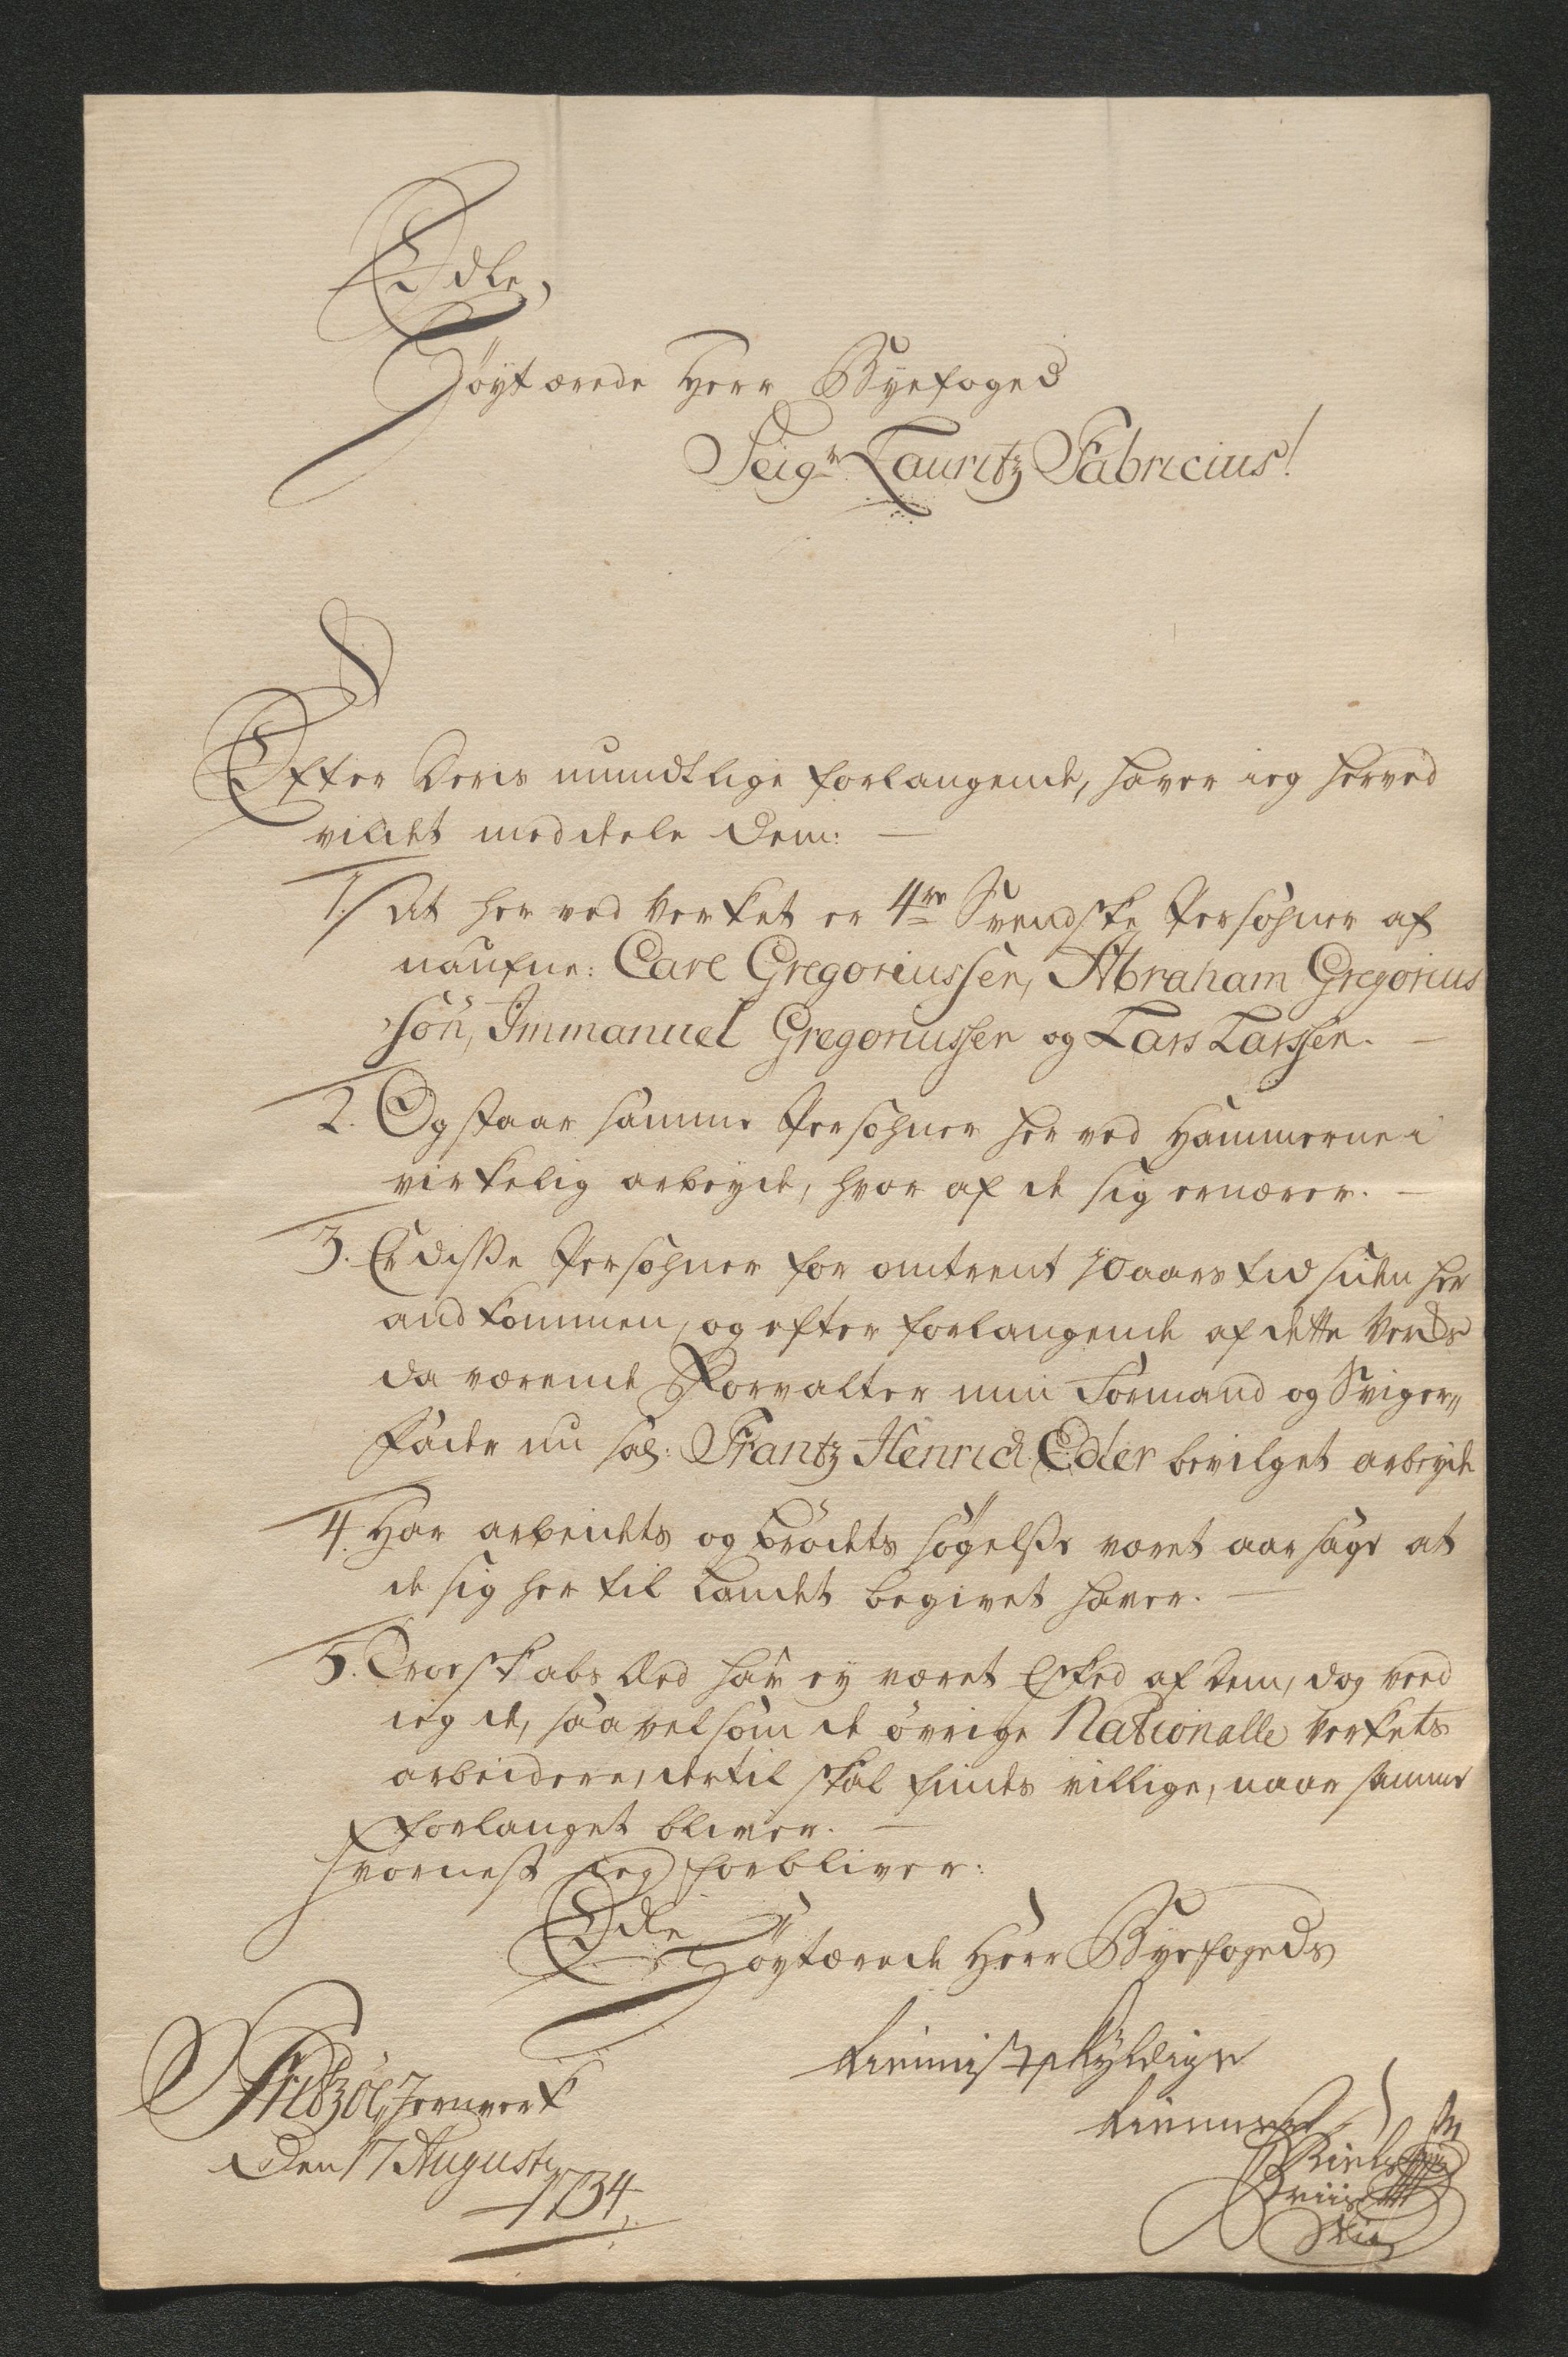 Edle,
Høyt ærede Herr Byefoged
Seigr Lauritz Fabricius!
Efter Deris mundtlige forlangende, haver ieg herved
villet meddele dem:
1./ At her ved Verket er 4re Svendske Persohner af
naufne: Carl Gregoriussen, Abraham Gregorius
sön, Immanuel Gregoriussen og Lars Larssen.
2. Og staar samme Persohner her ved Hammerne i
virkelig arbeyde, hvor af de sig ernærer.
3. Er disse Persohner for omtrent 10 aars tid siden her
andkommen, og efter forlangende af dette Verks
da værende Forvalter min Formand og Sviger„
fader nu sal: Frantz Henrich Edler bevilget arbeyde
4. Har arbeidets og brödets søgelse været aarsage at
de sig her til Landet begivet haver.
5. Troeskabs Æed har ey været Esked af dem, dog veed
ieg de, saavelsom de övrige Nationalle Verkets
arbeidere, dertil skal findes villige, naar samme
forlanget bliver.
Hvornest ieg forbliver:
Edle
Høytærede Herr Byefogeds
tienistskyldige
tienner
Fritzöe Jernverk
Den 17 Augusti
1734